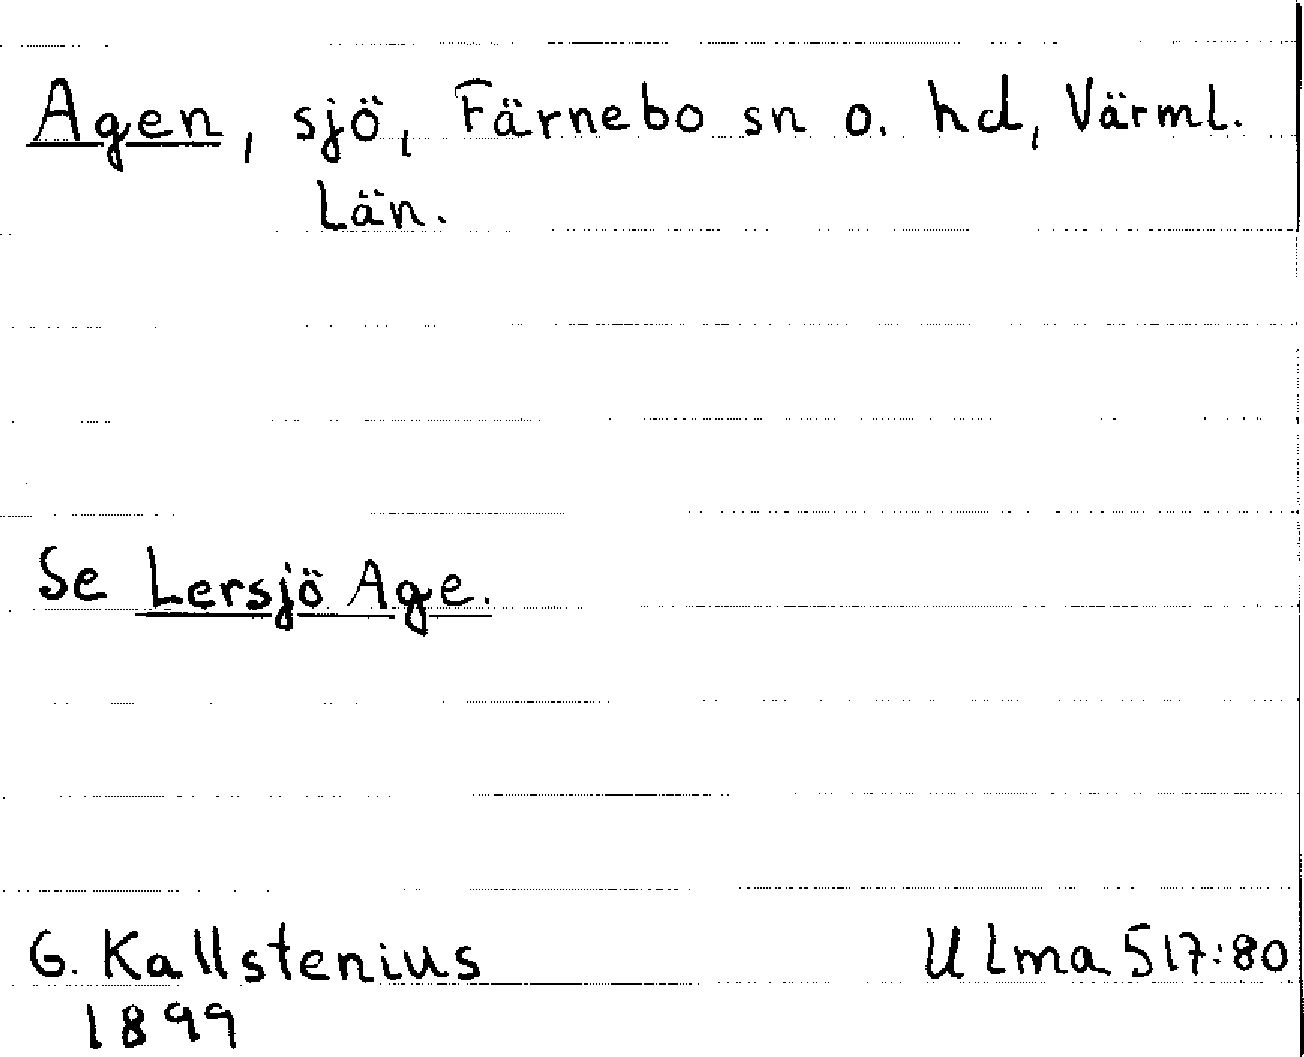 Agen, sjö, Färnebo sn o. hd, Värml.
Län.
Se Lersjö Age.
G. Kallstenius Ulma 517:80
1899